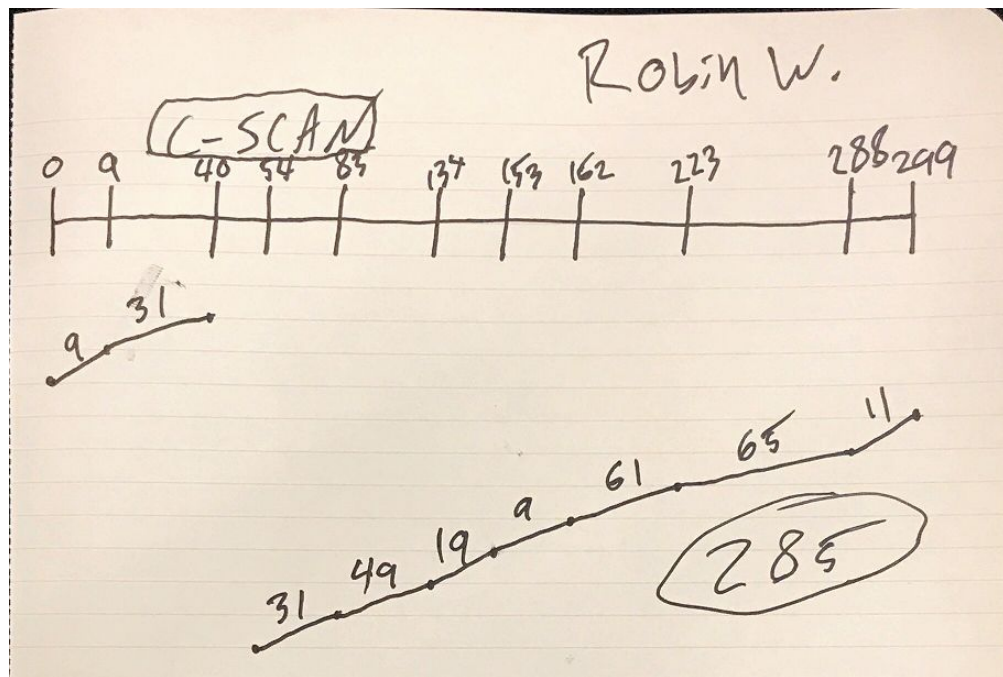 Robin W.
C-SCAN
0 9 40 54 85 134 153 162 223 288 299
9 31
11
65
61
9
19
49
31
285